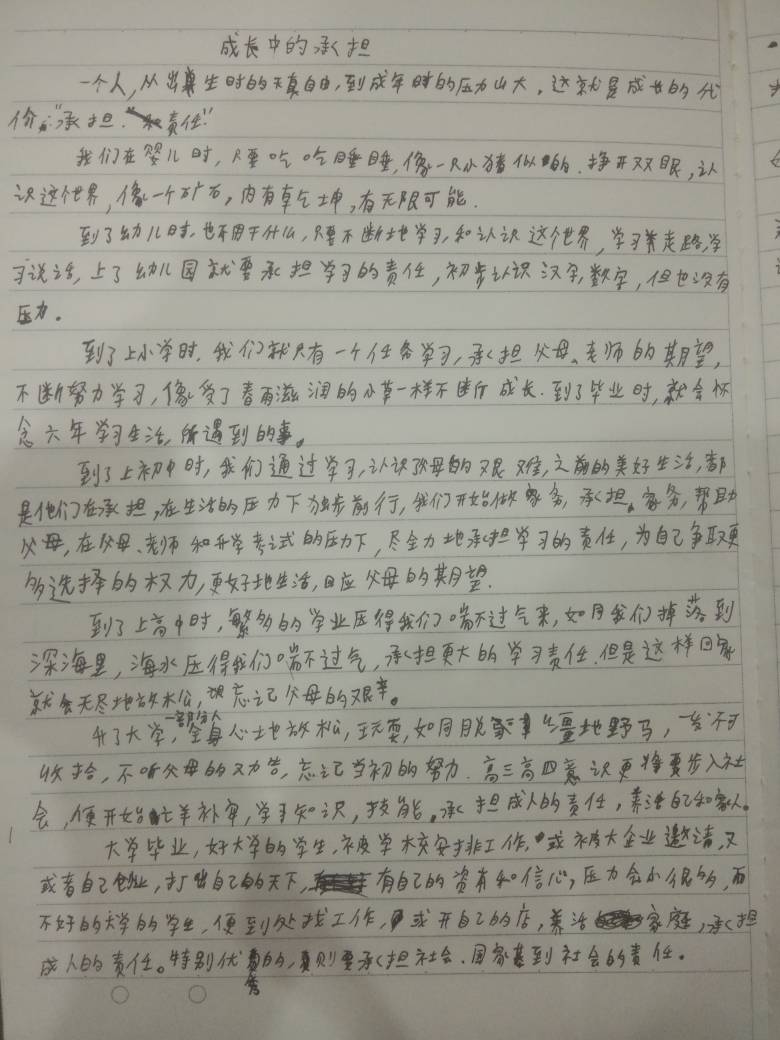 成长中的承担
一个人,从出生时的天真自由,到成年时的压力山大,这就是成长的代
价:"承担""责任"
我们在婴儿时,只要吃吃睡睡,像一只小猪似的.挣开双眼,认
识这个世界,像一个矿石,内有乾坤,有无限可能.
到了幼儿时,也不用干什么,只要不断地学习,和认识这个世界,学习走路,学
习说话,上了幼儿园就要承担学习的责任,初步认识汉字,数字,但也没有
压力。
到了上小学时,我们就只有一个任务学习,承担父母、老师的期望,
不断努力学习,像受了春雨滋润的小草一样不断成长.到了毕业时,就会怀
念六年学习生活,所遇到的事。
到了上初中时,我们通过学习,认识父母的艰难,之前的美好生活,都
是他们在承担,在生活的压力下独步前行,我们开始做家务,承担家务,帮助
父母,在父母、老师和升学考试的压力下,尽全力地承担学习的责任,为自己争取更
多选择的权力,更好地生活,回应父母的期望.
到了上高中时,繁多的学业压得我们喘不过气来,如同我们掉落到
深海里,海水压得我们喘不过气,承担更大的学习责任.但是这样回家
就会无尽地放松,忘记父母的艰辛。
升了大学,一部分人全身心地放松,玩耍,如同脱缰地野马,一发不可
收拾,不听父母的劝告,忘记当初的努力.高三高四意识更将要步入社
会,便开始亡羊补牢,学习知识,技能,承担成人的责任,养活自己和家人。
大学毕业,好大学的学生,被学校安排工作,或被大企业邀请,又
或者自己创业,打出自己的天下,有自己的资有和信心,压力会小很多,而
不好的大学的学生,便到处找工作,或开自己的店,养活家庭,承担
成人的责任。特别优秀的,则要承担社会.国家甚到社会的责任。